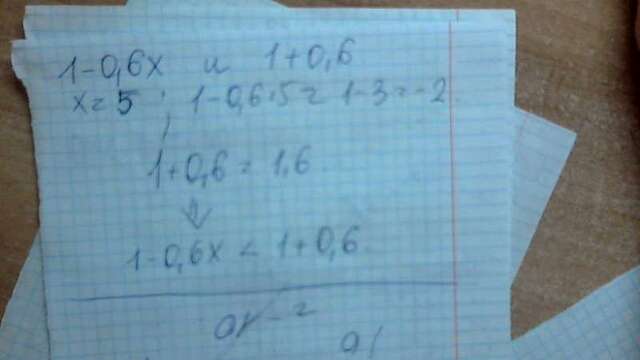 1-0,6x и 1+0,6
x=5; 1-0,6·5=1-3=-2
1+0,6=1,6.
⇓
1-0,6x < 1+0,6.